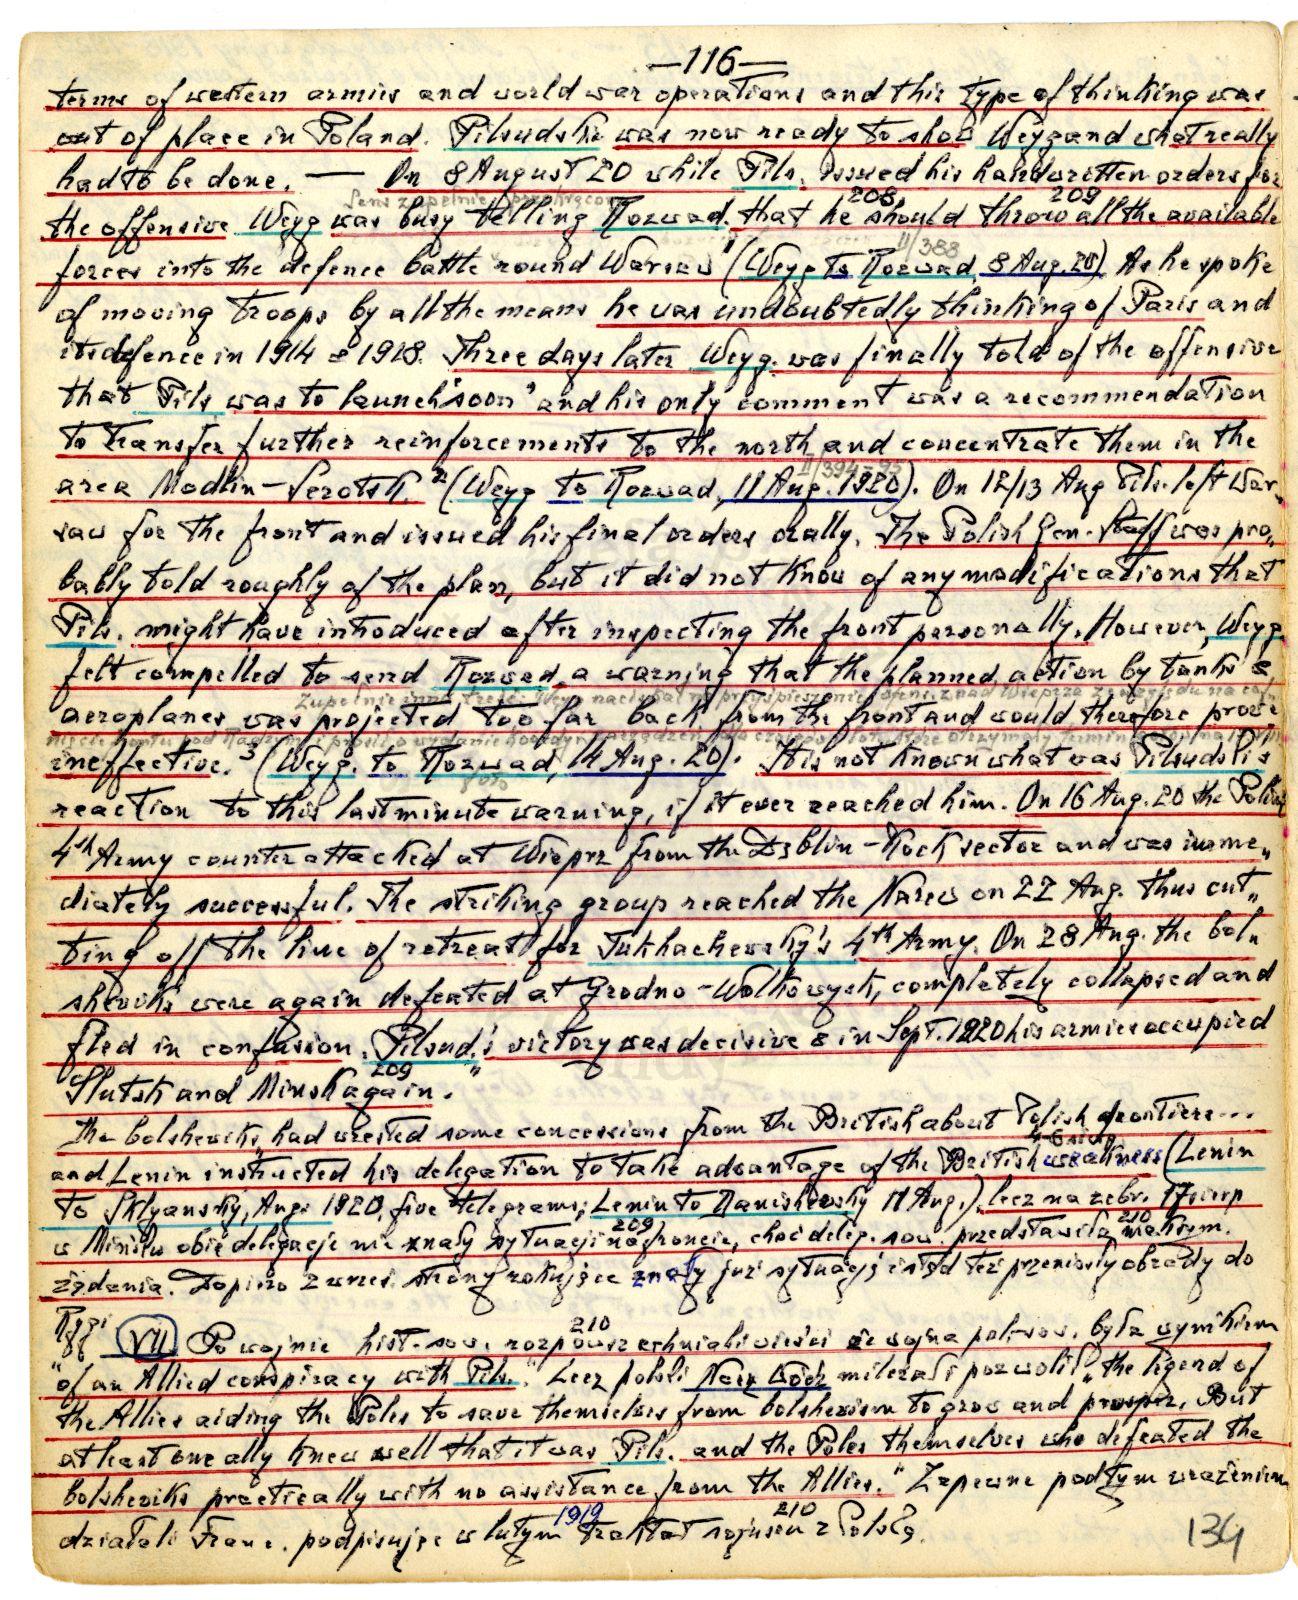 —116—
terms of western armies and world war operations and this type of thinking was
out of place in Poland. Pilsudski was now ready to show Weygand what really
had to be done. — On 8 August 20 while Pils. issued his handwritten orders for
Sens zupełnie przekręcony
208 209
the offensive Weyg was busy telling Rozwad. that he should throw all the available
II/388
forces into the defence battle round Warsaw" 1 (Weyg to Rozwad, 8 Aug. 20) As he spoke
of moving troops by all the means he was undoubtedly thinking of Paris and
its defence in 1914 & 1918. Three days later Weyg. was finally told of the offensive
that Pils. was to launch "soon" and his only comment was a recommendation
to transfer further reinforcements to the north and concentrate them in the
II/394-95
area Modlin – Serotsk. 2 (Weyg to Rozwad, 11 Aug. 1920). On 12/13 Aug Pils. left War„
saw for the front and issued his final orders orally. The Polish Gen. Staff was pro„
bably told roughly of the plan, but it did not know of any modifications that
Pils. might have introduced after inspecting the front personally. However, Weyg.
felt compelled to send Rozwad. a warning that the planned action by tanks &
Zupełnie inna treść. Weyg naciskał na przyspieszenie ofens. znad Wieprza ze względu na
aeroplanes was projected too far back from the front and would therefore prove
ineffective." 3 (Weyg. to Rozwad, 14 Aug. 20). It is not known what was Pilsudski's
reaction to this last minute warning, if it ever reached him. On 16 Aug. 20 the Polish
4th Army counter attacked at Wieprz from the Dęblin – Kock sector and was imme„
diately successful. The striking group reached the Narew on 22 Aug. thus cut„
ting off the line of retreat for Tukhachevsky's 4th Army. On 28 Aug. the bol„
sheviks were again defeated at Grodno – Wolkowysk, completely collapsed and
fled in confusion. Pilsud.'s victory was decisive & in Sept. 1920 his armies occupied
209
Slutsk and Minsk again.
The bolsheviks "had wrested some concessions from the British about Polish frontiers...
and Lenin instructed his delegation to take advantage of the British weakness (Lenin
to Sklyansky, Aug. 1920, five telegrams; Lenin to Danishevsky 11 Aug.) lecz na zebr. 17 sierp
209 210
w Mińsku obie delegacje nie znały sytuacji na froncie, choć deleg. sow. przedstawiła maksym.
żądania. Dopiero z wrześ. strony rokujące znały już sytuację i stąd też przeniosły obrady do
Rygi
210
VII Po wojnie hist. sow. rozpowszechniali wieści że wojna pol-sow. była wynikiem
"of an Allied conspiracy with Pils." Lecz polski Nacz Wódz milczał i pozwolił "the legend of
the Allies aiding the Poles to save themselves from bolshevism to grow and prosper. But
at least one ally knew well that it was Pils. and the Poles themselves who defeated the
bolsheviks practically with no assistance from the Allies." Zapewne pod tym wrażeniem
1919 210
działali Franc. podpisując w lutym traktat sojuszu z Polską.
134